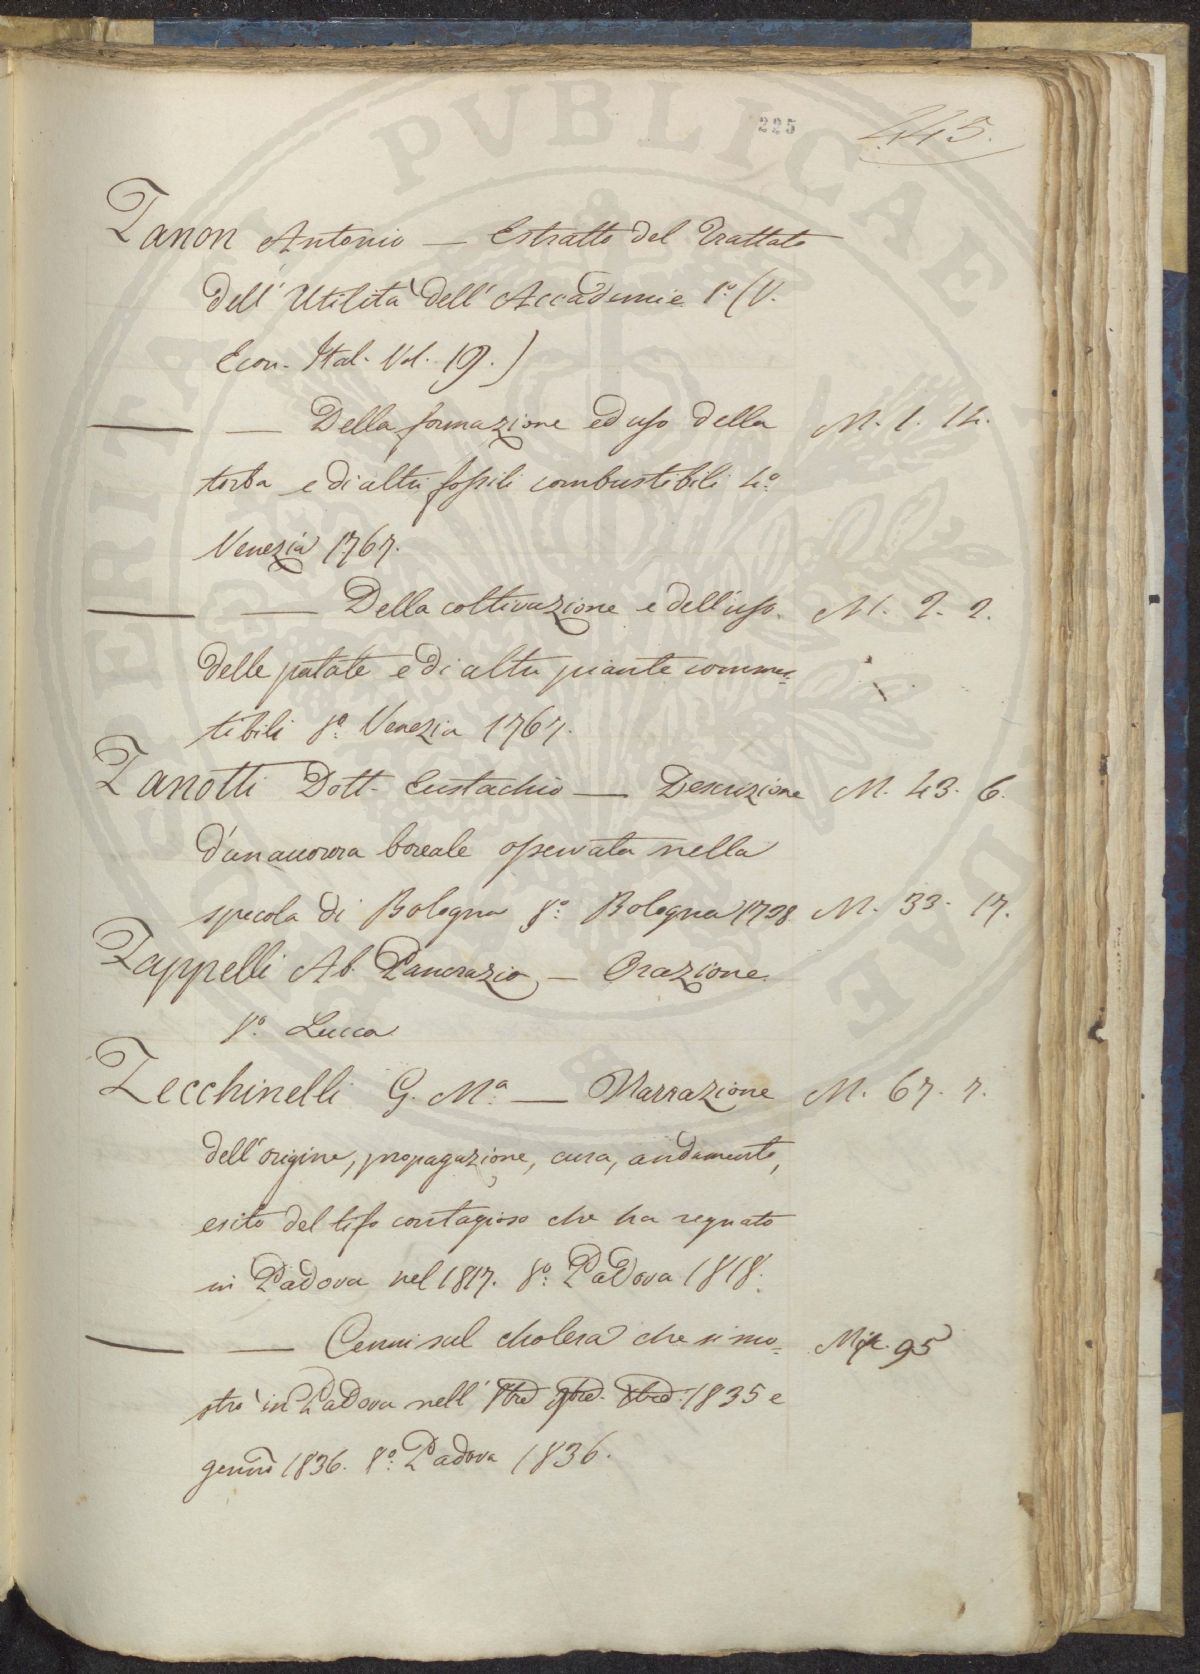 225
445.
Zanon Antonio — Estratto del Trattato
dell' Utilità dell' Accademie 8.º (V.
Econ. Ital. Vol. 19.)
— — Della formazione ed uso della M. 1. 14.
torba e di altri fossili combustibili 4.º
Venezia 1767.
— — Della coltivazione e dell'uso M. 2. 2.
delle patate e di altre piante comme-
tibili 8.º Venezia 1767.
Zanotti Dott. Eustachio — Descrizione M. 43. 6.
d'un aurora boreale osservata nella
specola di Bologna 8.º Bologna M. 33. 17.
Zappelli Ab. Pancrazio — Orazione
8.º Lucca
Zecchinelli G. M.ª — Narrazione M. 67. 7.
dell'origine, propagazione, cura, andamento,
esito del tifo contagioso che ha regnato
in Padova nel 1817. 8.º Padova 1818.
— — Cenni sul cholera che si mo- 95
strò in Padova nell' 8bre 9bre Xbre 1835 e
genn. 1836. 8.º Padova 1836.
PUBLICAE